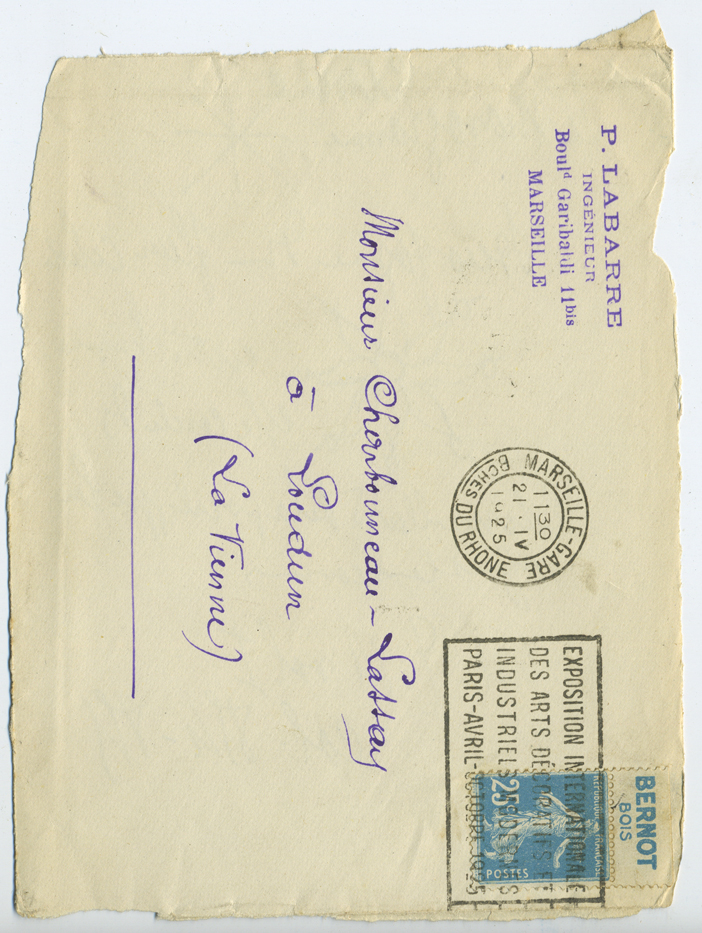 P. LABARRE
INGÉNIEUR
Boulᵈ Garibaldi 11bis
MARSEILLE
MARSEILLE-GARE
1130
21 · IV
1925
BCHES DU RHONE
EXPOSITION INTERNATIONALE
DES ARTS DÉCORATIFS ET
INDUSTRIELS MODERNES
PARIS-AVRIL-OCTOBRE 1925
BERNOT
BOIS
REPUBLIQUE FRANÇAISE
25
POSTES
Monsieur Charbonneau-Lassay
à Loudun
(La Vienne)